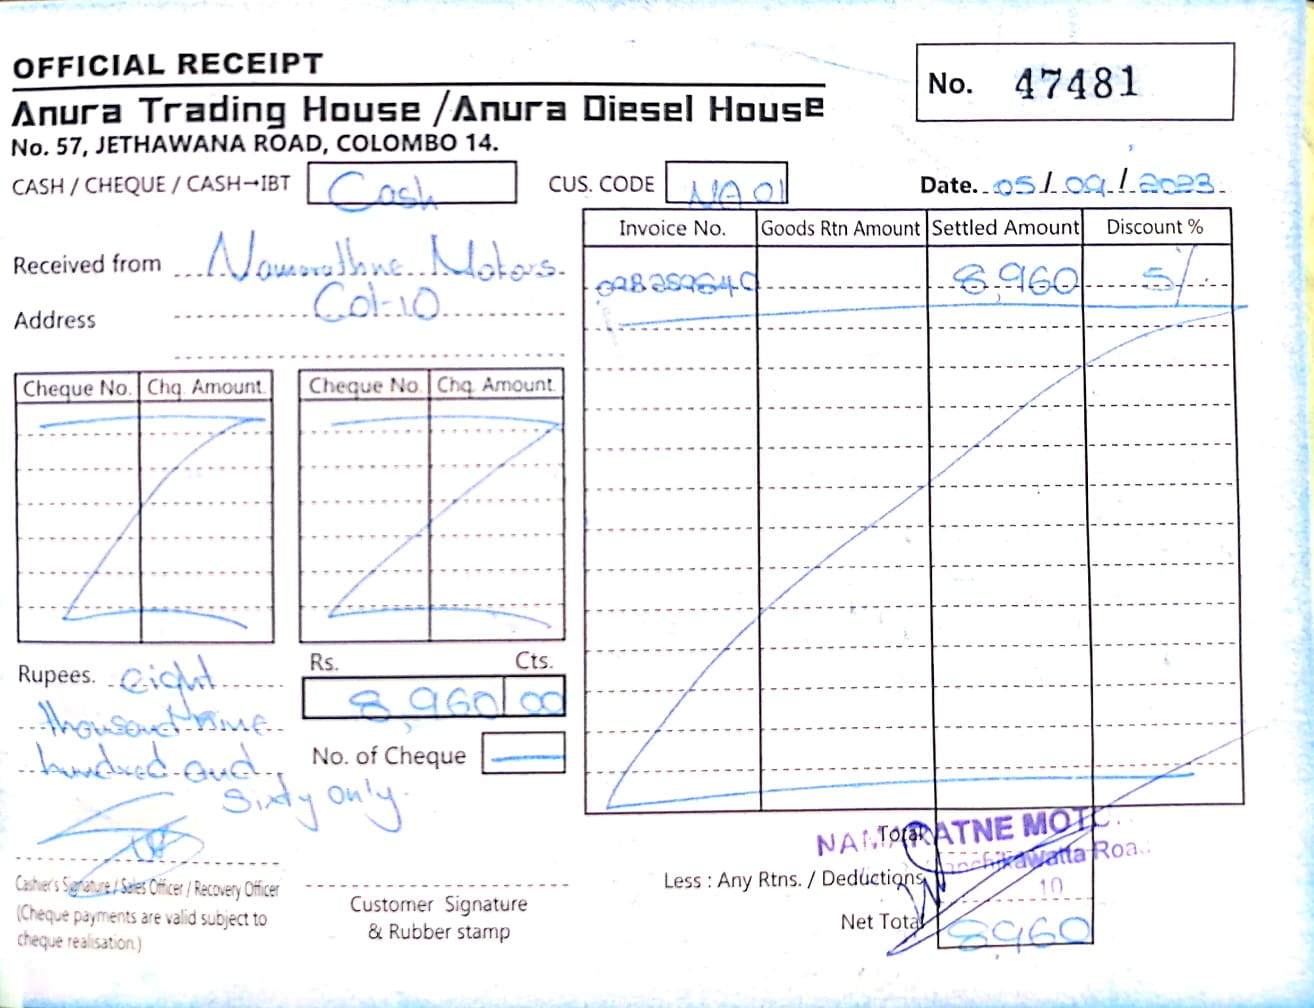 OFFICIAL RECEIPT
No. 47481
Anura Trading House / Anura Diesel House
No. 57, JETHAWANA ROAD, COLOMBO 14.
CASH / CHEQUE / CASH→IBT Cash CUS. CODE NA 01 Date. 05/09/2023
Received from Namarathne Motors.
Address Col-10
Invoice No. Goods Rtn Amount Settled Amount Discount %
8,960 5/
Cheque No. Chq. Amount Cheque No. Chq. Amount
Rupees. eight
thousand nine
hundred and
sixty only.
Rs. Cts.
8,960 00
No. of Cheque
Cashier's Signature / Sales Officer / Recovery Officer
(Cheque payments are valid subject to
cheque realisation.)
Customer Signature
& Rubber stamp
Total
NAMARATNE MOTO
Roa
10
Less : Any Rtns. / Deductions
Net Total 8,960